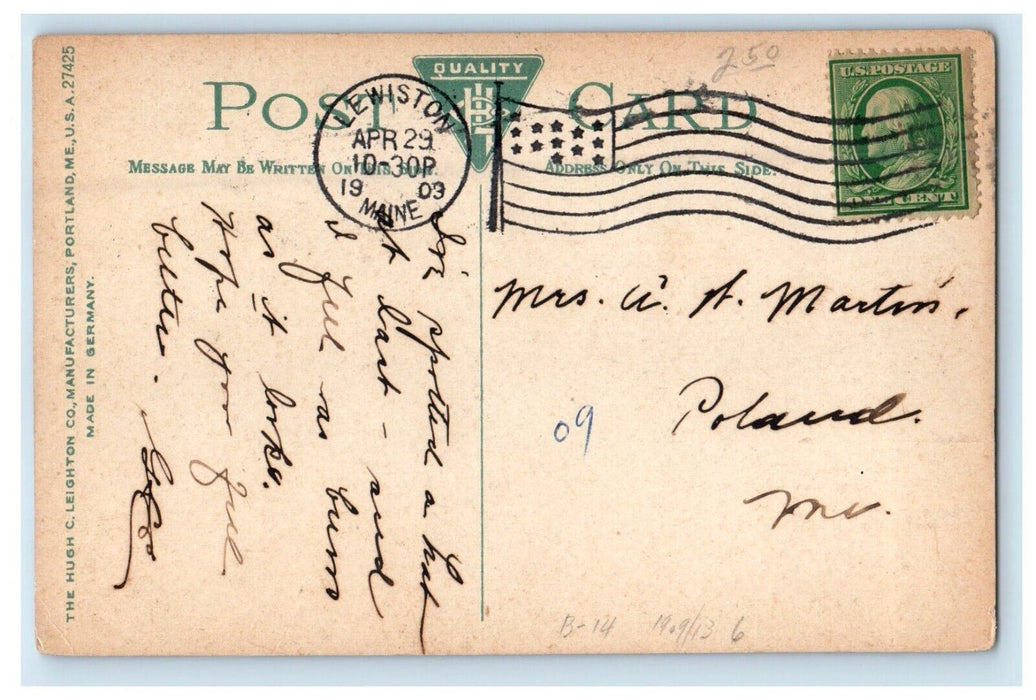 THE HUGH C. LEIGHTON CO., MANUFACTURERS, PORTLAND, ME., U.S.A. 27425
MADE IN GERMANY.
QUALITY
POST CARD
MESSAGE MAY BE WRITTEN ON THIS SIDE.
ADDRESS ONLY ON THIS SIDE.
LEWISTON
APR 29
10-30P
1903
MAINE
U.S. POSTAGE
ONE CENT
250
I've spotted a hat
at last - and
I feel as bum
as it looks.
Hope you feel
better.
Mrs. A. A. Martin.
Poland.
Me.
09
B-14 1909/13 6